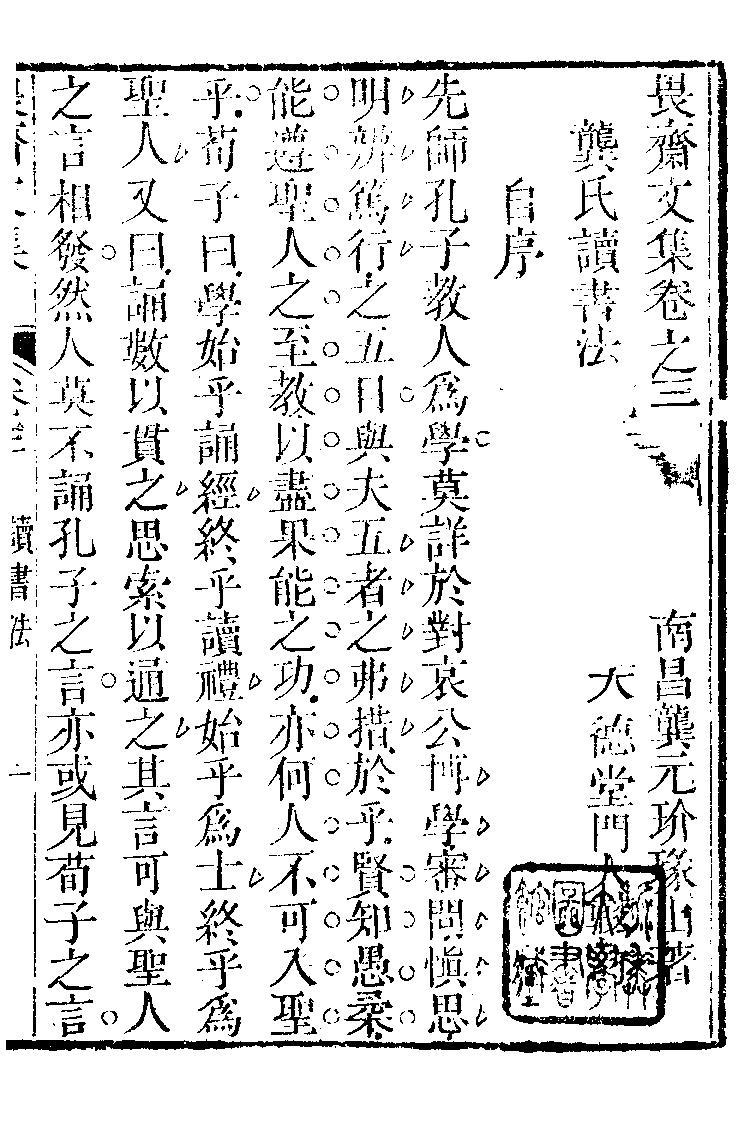 畏齋文集卷之三
南昌龔元玠豫山著
龔氏讀書法
大德堂門人
自序
先師孔子教人爲學莫詳於對哀公博學審問愼思
明辨篤行之五目與夫五者之弗措於乎賢知愚柔
能遵聖人之至教以盡果能之功亦何人不可入聖
乎荀子曰學始乎誦經終乎讀禮始乎爲士終乎爲
聖人又曰誦數以貫之思索以通之其言可與聖人
之言相發然人莫不誦孔子之言亦或見荀子之言
讀書法
一